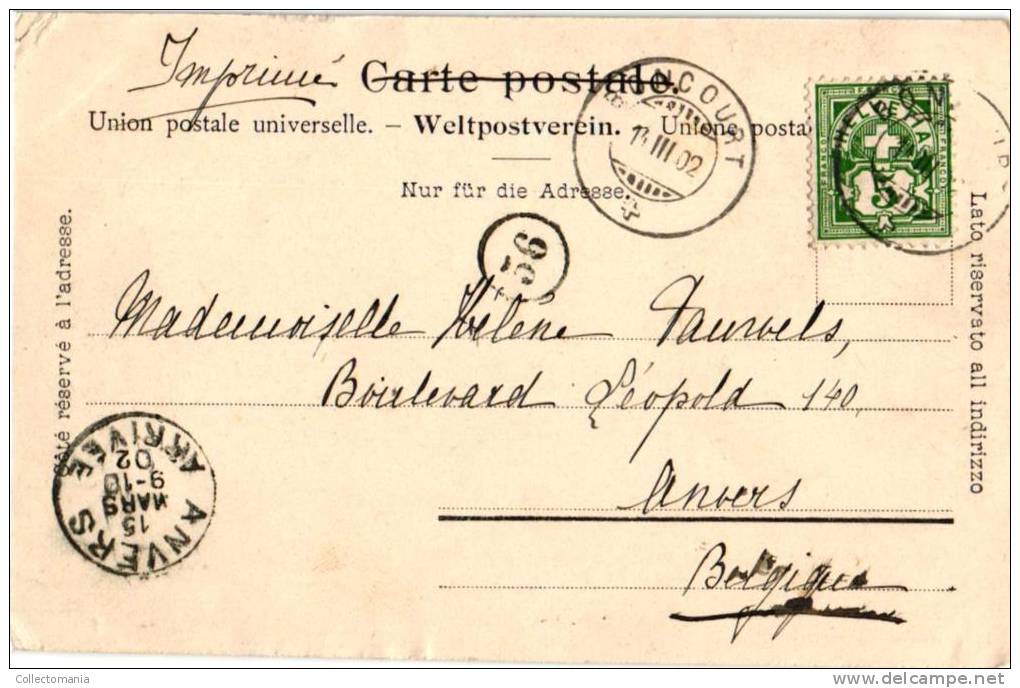 Imprimé
Carte postale.
Union postale universelle. – Weltpostverein. – Unione posta
Nur für die Adresse.
NCOURT
III 02
HELVETIA
FRANCO
FRANCO
5
56
Côté réservé à l'adresse.
Lato riservato all indirizzo
Mademoiselle Hélène Pauwels,
Boulevard Léopold 140,
Anvers
Belgique
ANVERS
15
MARS
9-10
02
ARRIVÉE
Collectomania
delcampe.net